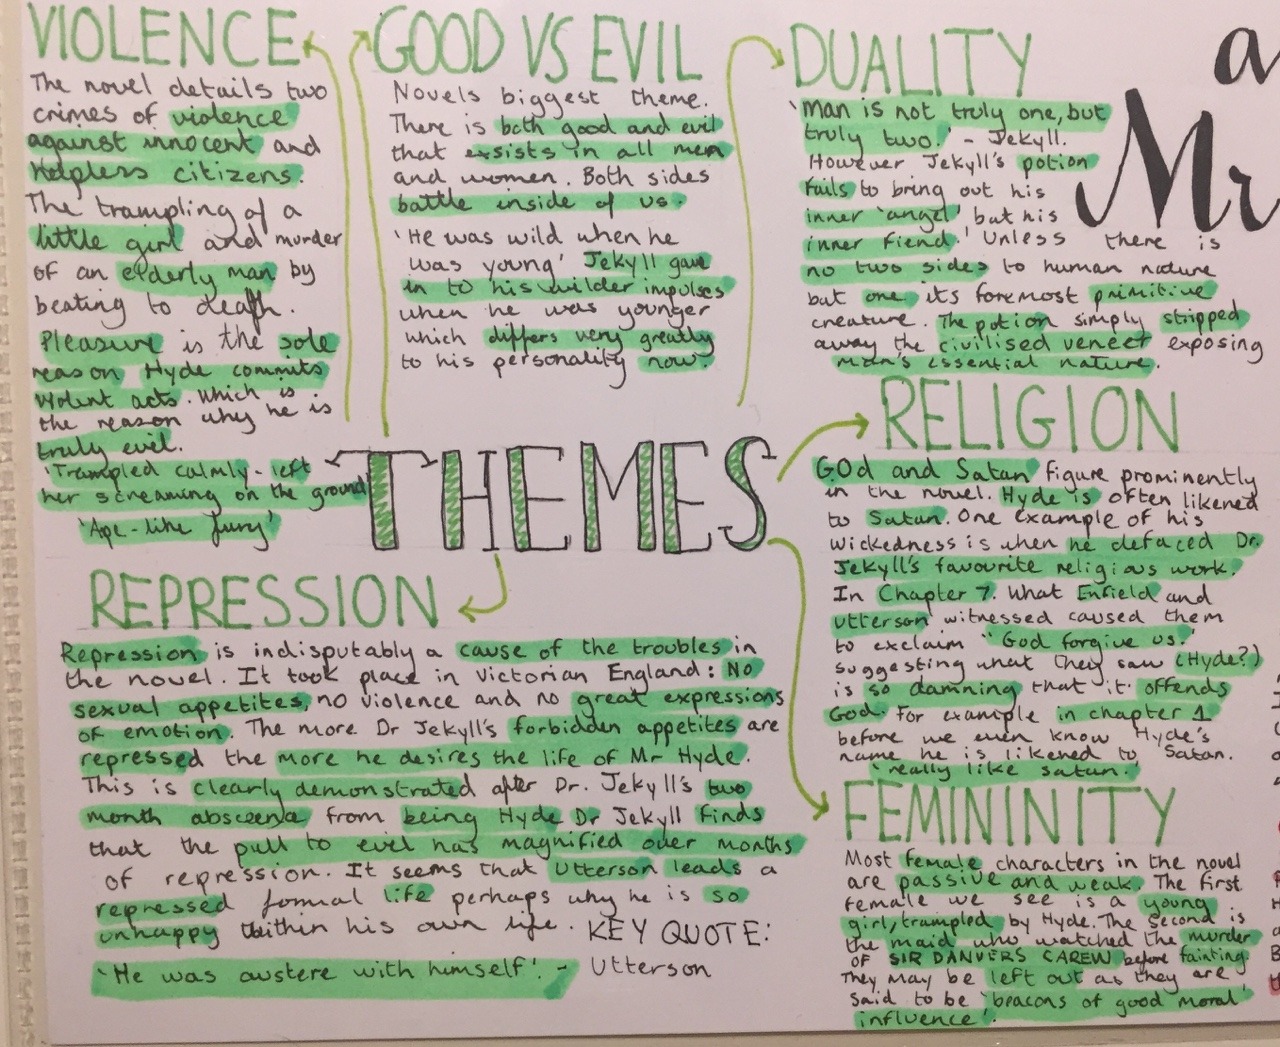 VIOLENCE
The novel details two
crimes of violence
against innocent and
helpless citizens.
The trampling of a
little girl and murder
of an elderly man by
beating to death.
Pleasure is the sole
reason Hyde commits
violent acts. Which is
the reason why he is
truly evil.
'Trampled calmly - left
her screaming on the ground'
'Ape-like fury'
GOOD VS EVIL
Novels biggest theme.
There is both good and evil
that exsists in all men
and women. Both sides
battle inside of us.
'He was wild when he
was young' Jekyll gave
in to his wilder impulses
when he was younger
which differs very greatly
to his personality now.
DUALITY
'Man is not truly one, but
truly two.' - Jekyll.
However Jekyll's potion
fails to bring out his
inner 'angel' but his
inner fiend.' Unless there is
no two sides to human nature
but one its foremost primitive
creature. The potion simply stripped
away the civilised veneer exposing
man's essential nature.
a
Mr
THEMES
RELIGION
GOd and Satan figure prominently
in the novel. Hyde is often likened
to Satan. One example of his
wickedness is when he defaced Dr.
Jekyll's favourite religious work.
In Chapter 7. What Enfield and
Utterson witnessed caused them
to exclaim "God forgive us."
suggesting what they saw (Hyde?)
is so damning that it offends
God. For example in chapter 1
before we even know Hyde's
name he is likened to Satan.
'really like satan.'
REPRESSION
Repression is indisputably a cause of the troubles in
the novel. It took place in Victorian England: No
sexual appetites, no violence and no great expressions
of emotion. The more Dr Jekyll's forbidden appetites are
repressed the more he desires the life of Mr Hyde.
This is clearly demonstrated after Dr. Jekyll's two
month from being Hyde Dr Jekyll finds
that the pull to evil has magnified over months
of repression. It seems that Utterson leads a
repressed formal life perhaps why he is so
unhappy within his own life. KEY QUOTE:
'He was austere with himself'. - Utterson
FEMININITY
Most female characters in the novel
are passive and weak. The first
female we see is a young
girl, trampled by Hyde. The second is
the maid who watched the murder
of SIR DANVERS CAREW before fainting.
They may be left out as they are
said to be 'beacons of good moral'
influence'.